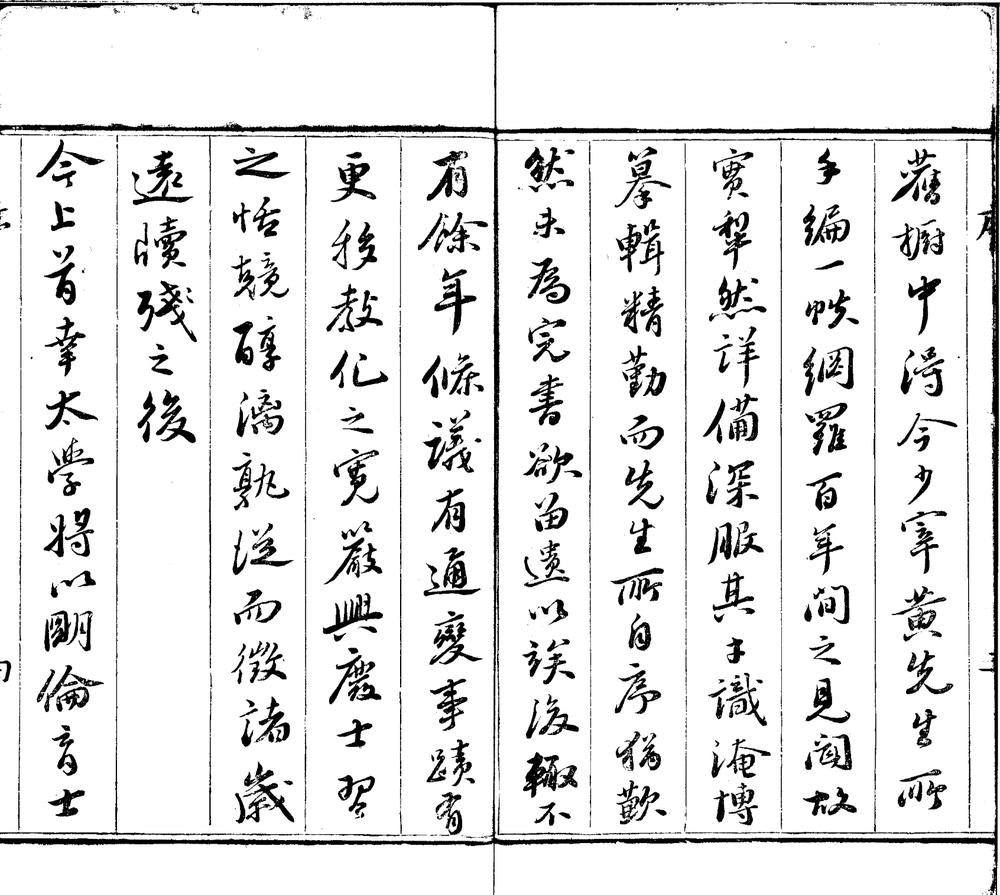 舊橱中得今少宰黄先生所
手編一帙網羅百年間之見聞故
實犂然詳備深服其才識淹博
摹輯精勤而先生所自序猶歉
然未為完書欲留遺以俟後輙不
有餘年條議有通變事蹟有
更移教化之寛嚴興廢士習
之恬競醇漓孰從而徵諸歲
遠牘殘之後
今上首幸太學将以明倫育士